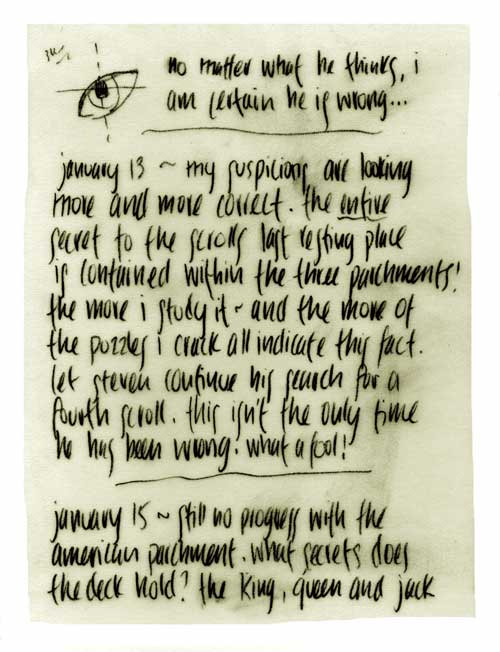 no matter what he thinks, i
am certain he is wrong...
january 13 ~ my suspicions are looking
more and more correct. the entire
secret to the scrolls last resting place
is contained within the three parchments!
the more i study it ~ and the more of
the puzzles i crack all indicate this fact.
let steven continue his search for a
fourth scroll. this isn't the only time
he has been wrong. what a fool!
january 15 ~ still no progress with the
american parchment. what secrets does
the deck hold? the king, queen and jack